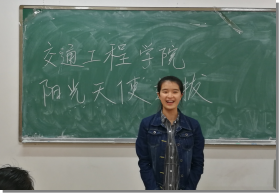 交通工程学院
阳光天使 拔